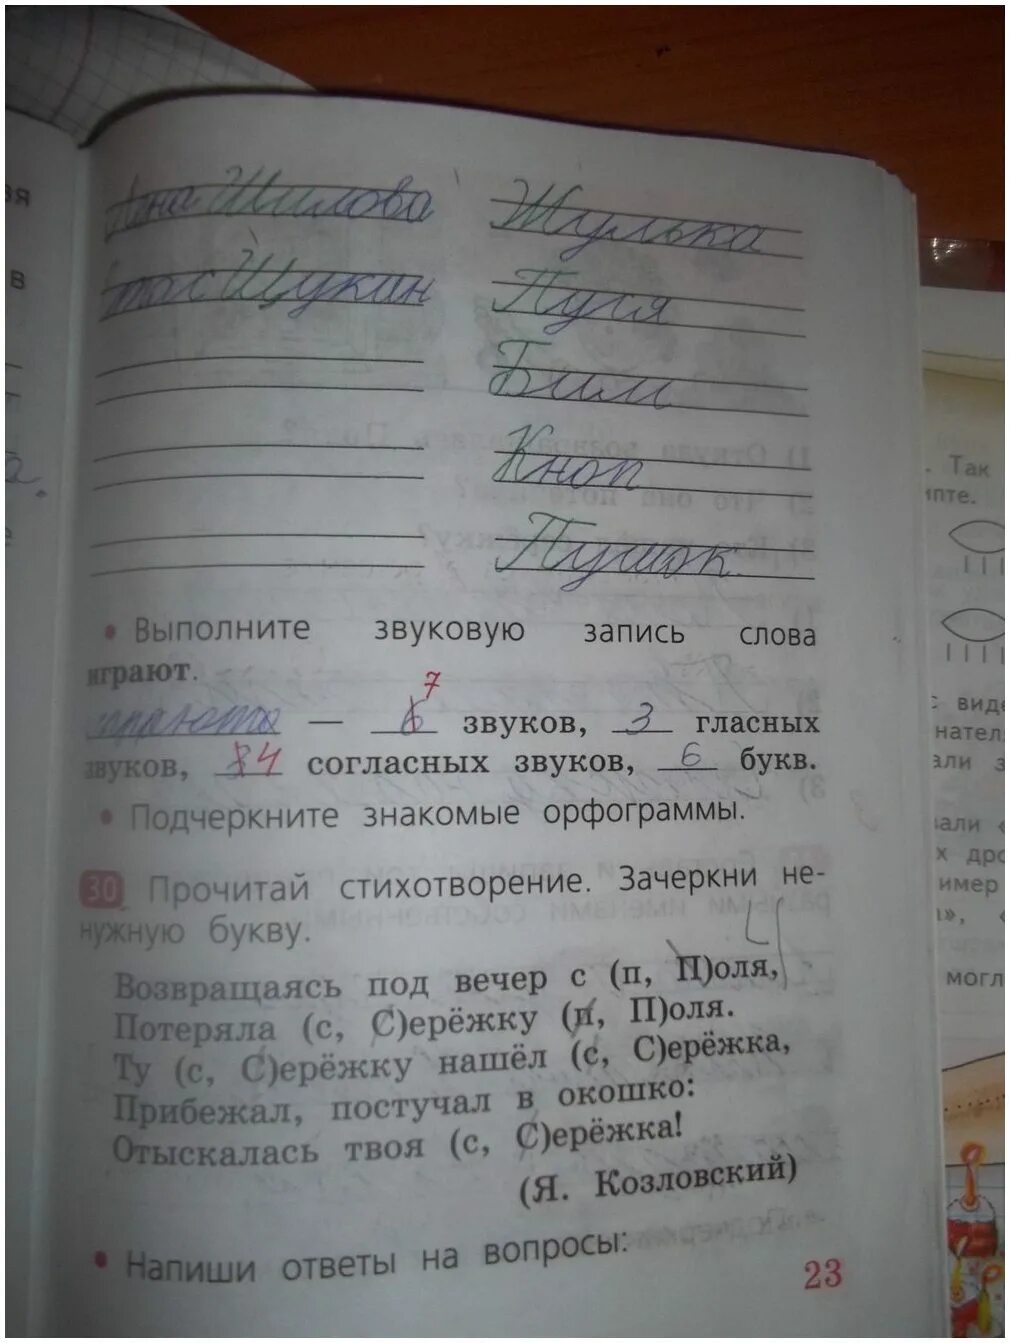 Анна Шилова
Жулька
Стас Щукин
Пуся
Бим
Кноп
Пушок
• Выполните звуковую запись слова
играют.
7
— 6 звуков, 3 гласных
звуков, 4 согласных звуков, 6 букв.
• Подчеркните знакомые орфограммы.
30 Прочитай стихотворение. Зачеркни не-
нужную букву.
Возвращаясь под вечер с (п, П)оля,
Потеряла (с, С)ерёжку (п, П)оля.
Ту (с, С)ерёжку нашёл (с, С)ерёжка,
Прибежал, постучал в окошко:
Отыскалась твоя (с, С)ерёжка!
(Я. Козловский)
• Напиши ответы на вопросы:
23
. Так
ипте.
могл